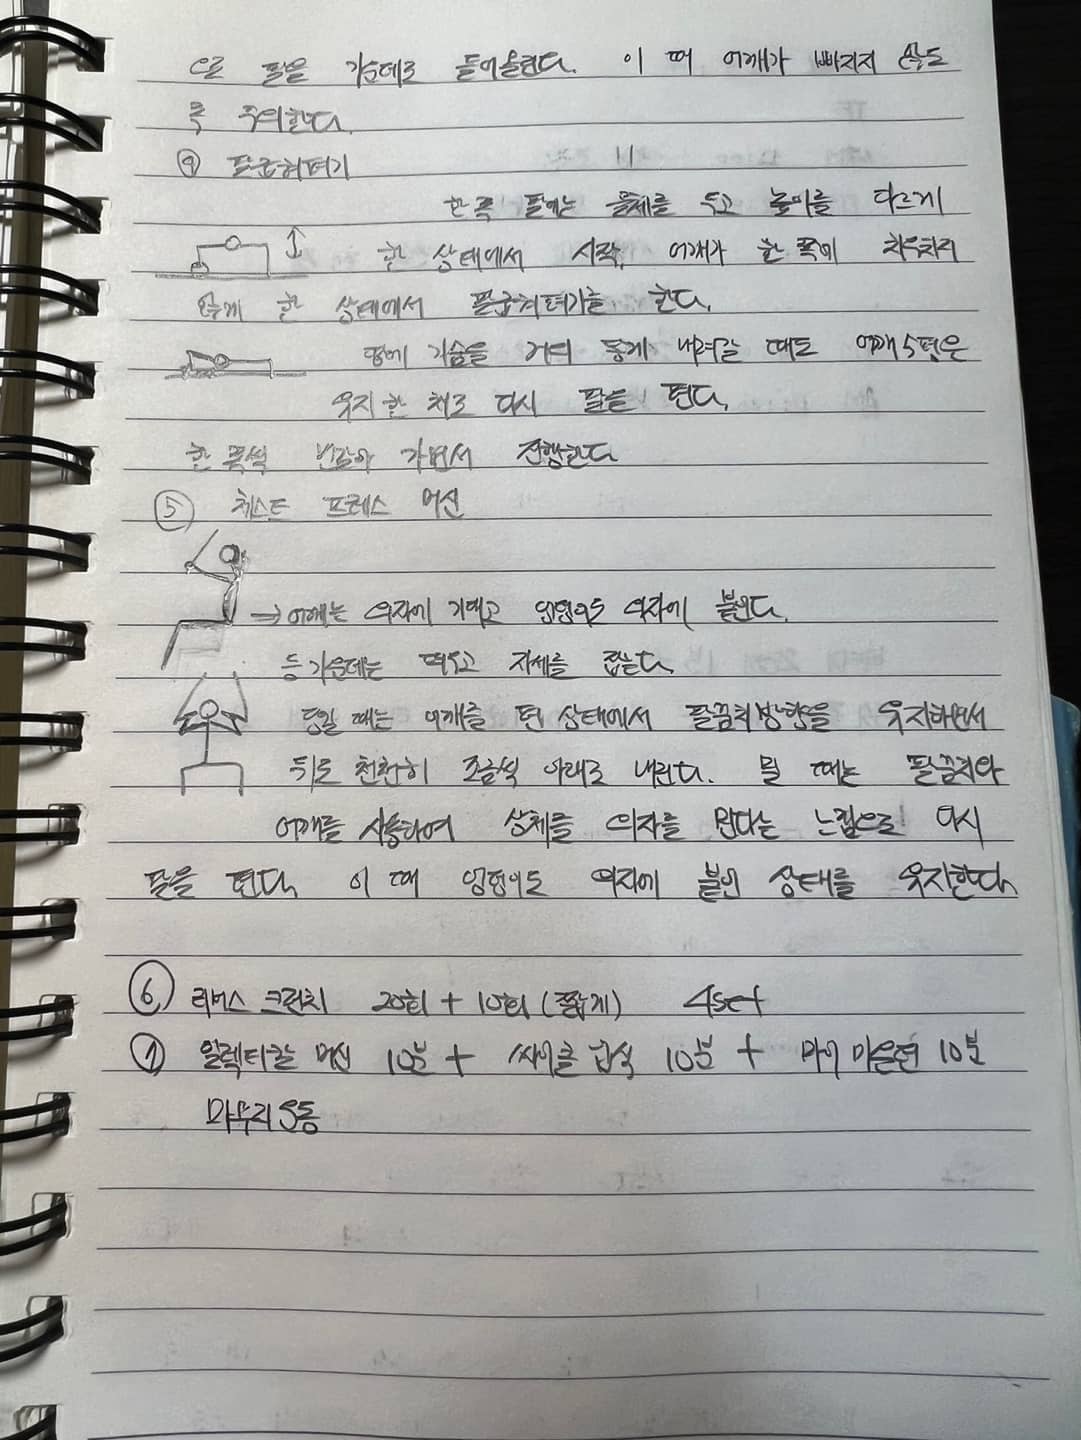 으로 팔을 가운데로 들어올린다. 이 때 어깨가 빠지지 않도
록 주의한다.
④ 팔굽혀펴기
한 쪽 팔에는 물체를 두고 높이를 다르게
한 상태에서 시작, 어깨가 한 쪽에 치우치지
않게 한 상태에서 팔굽혀펴기를 한다.
땅에 가슴을 거의 닿게 내려갈 때도 어깨 수평은
유지한 채로 다시 팔을 편다.
한 쪽씩 번갈아 가면서 진행한다
⑤ 체스트 프레스 머신
→ 어깨는 의자에 기대고 엉덩이도 의자에 붙인다.
등 가운데는 띄우고 자세를 잡는다.
당길 때는 어깨를 편 상태에서 팔꿈치방향을 유지하면서
뒤로 천천히 조금씩 아래로 내린다. 밀 때는 팔꿈치와
어깨를 사용하여 상체를 의자를 민다는 느낌으로 다시
팔을 편다. 이 때 엉덩이도 의자에 붙인 상태를 유지한다.
⑥ 리버스 크런치 20회 + 10회 (짧게) 4set
⑦ 일렉티컬 머신 10분 + 싸이클 급식 10분 + 마이 마운틴 10분
마무리 운동